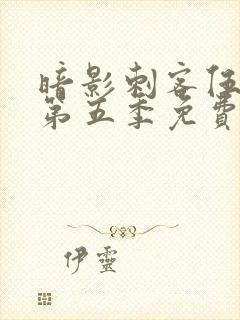 暗影刺客伍
第五季免費
伊靈